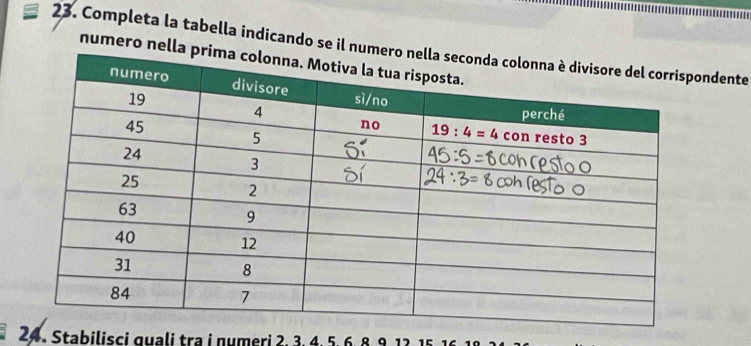 23. Completa la tabella indicando se il numero nella seconda colonna è divisore del corrispondente
numero nella prima colonna. Motiva la tua risposta.
numero divisore sì/no perché
19 4 no 19 : 4 = 4 con resto 3
45 5 Sí 45:5=8 con resto 0
24 3 Sí 24:3=8 con resto 0
25 2
63 9
40 12
31 8
84 7
24. Stabilisci quali tra i numeri 2, 3, 4, 5, 6, 8, 9, 12, 15, 16,